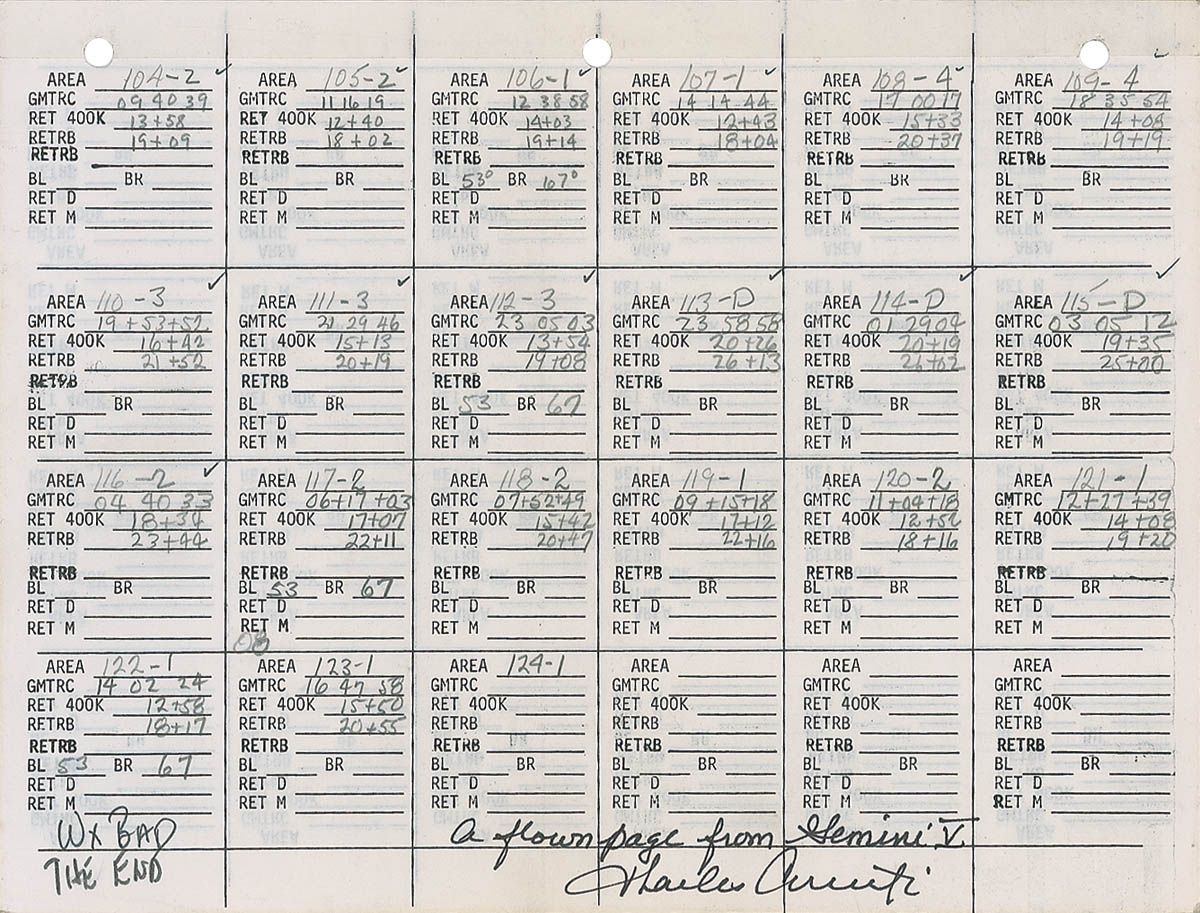 AREA 104-2 ✓
GMTRC 09 40 39
RET 400K 13+58
RETRB 19+09
RETRB
BL BR
RET D
RET M
AREA 105-2 ✓
GMTRC 11 16 19
RET 400K 12+40
RETRB 18+02
RETRB
BL BR
RET D
RET M
AREA 106-1 ✓
GMTRC 12 38 58
RET 400K 14+03
RETRB 19+14
RETRB
BL 53° BR 67°
RET D
RET M
AREA 107-1 ✓
GMTRC 14 14 44
RET 400K 12+43
RETRB 18+04
RETRB
BL BR
RET D
RET M
AREA 108-4 ✓
GMTRC 17 00 17
RET 400K 15+33
RETRB 20+37
RETRB
BL BR
RET D
RET M
AREA 109-4 ✓
GMTRC 18 35 54
RET 400K 14+08
RETRB 19+19
RETRB
BL BR
RET D
RET M
AREA 110-3 ✓
GMTRC 19+53+52
RET 400K 16+42
RETRB 21+52
RETRB
BL BR
RET D
RET M
AREA 111-3 ✓
GMTRC 21 29 46
RET 400K 15+13
RETRB 20+19
RETRB
BL BR
RET D
RET M
AREA 112-3 ✓
GMTRC 23 05 03
RET 400K 13+54
RETRB 19+08
RETRB
BL 53 BR 67
RET D
RET M
AREA 113-D ✓
GMTRC 23 58 58
RET 400K 20+26
RETRB 26+13
RETRB
BL BR
RET D
RET M
AREA 114-D ✓
GMTRC 01 29 04
RET 400K 20+19
RETRB 26+02
RETRB
BL BR
RET D
RET M
AREA 115-D ✓
GMTRC 03 05 12
RET 400K 19+35
RETRB 25+00
RETRB
BL BR
RET D
RET M
AREA 116-2 ✓
GMTRC 04 40 33
RET 400K 18+34
RETRB 23+44
RETRB
BL BR
RET D
RET M
AREA 117-2
GMTRC 06+17+03
RET 400K 17+07
RETRB 22+11
RETRB
BL 53 BR 67
RET D
RET M
08
AREA 118-2
GMTRC 07+52+49
RET 400K 15+42
RETRB 20+47
RETRB
BL BR
RET D
RET M
AREA 119-1
GMTRC 09+15+18
RET 400K 17+12
RETRB 22+16
RETRB
BL BR
RET D
RET M
AREA 120-2
GMTRC 11+04+18
RET 400K 12+56
RETRB 18+16
RETRB
BL BR
RET D
RET M
AREA 121-1
GMTRC 12+27+39
RET 400K 14+08
RETRB 19+20
RETRB
BL BR
RET D
RET M
AREA 122-1
GMTRC 14 02 24
RET 400K 12+58
RETRB 18+17
RETRB
BL 53 BR 67
RET D
RET M
WX BAD
THE END
AREA 123-1
GMTRC 16 47 58
RET 400K 15+50
RETRB 20+55
RETRB
BL BR
RET D
RET M
AREA 124-1
GMTRC
RET 400K
RETRB
RETRB
BL BR
RET D
RET M
AREA
GMTRC
RET 400K
RETRB
RETRB
BL BR
RET D
RET M
AREA
GMTRC
RET 400K
RETRB
RETRB
BL BR
RET D
RET M
AREA
GMTRC
RET 400K
RETRB
RETRB
BL BR
RET D
RET M
A flown page from Gemini V
Charles Conrad Jr